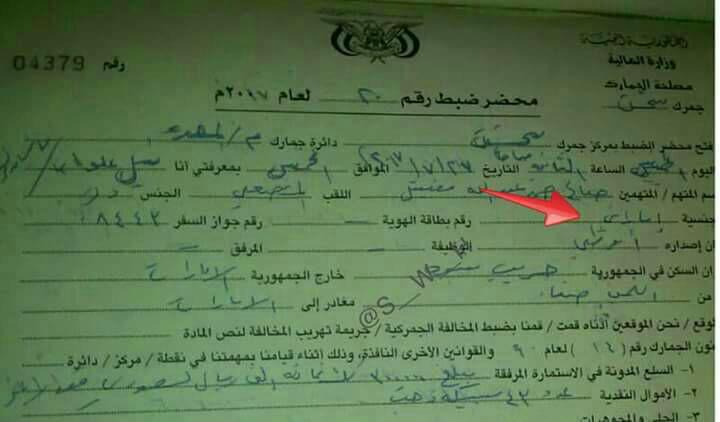 الجمهورية اليمنية
وزارة المالية
مصلحة الجمارك
جمرك شحن
رقم 04379
محضر ضبط رقم ٢٠ لعام ٢٠١٧م
فتح محضر الضبط بمركز جمرك شحن دائرة جمارك م/المهرة
اليوم الخميس الساعة الثامنة التاريخ ٢٠١٧/٧/٢٧ الموافق الخميس بمعرفتي أنا
سم المتهم / المتهمين صالح عبد الله اللقب الجنس ذكر
جنسية إماراتي رقم بطاقة الهوية – رقم جواز السفر ٠٨٤٤٢
ان إصداره أبوظبي الوظيفة – المرفق –
ان السكن في الجمهورية خارج الجمهورية الامارات
من اليمن صنعاء مغادر إلى الامارات
@S
توقع / نحن الموقعين أدناه قمت / قمنا بضبط المخالفة الجمركية / جريمة تهريب المخالفة لنص المادة
نون الجمارك رقم (١٤) لعام ٩٠ والقوانين الأخرى النافذة, وذلك إثناء قيامنا بمهمتنا في نقطة / مركز / دائرة
١- السلع المدونة في الاستمارة المرفقة مبلغ ٣٠٠٠٠٠ ثلاثمائة الف ريال سعودي
٢- الأموال النقدية عدد ٤٣ سبيكة ذهب
٣- الحلي والمجوهرات